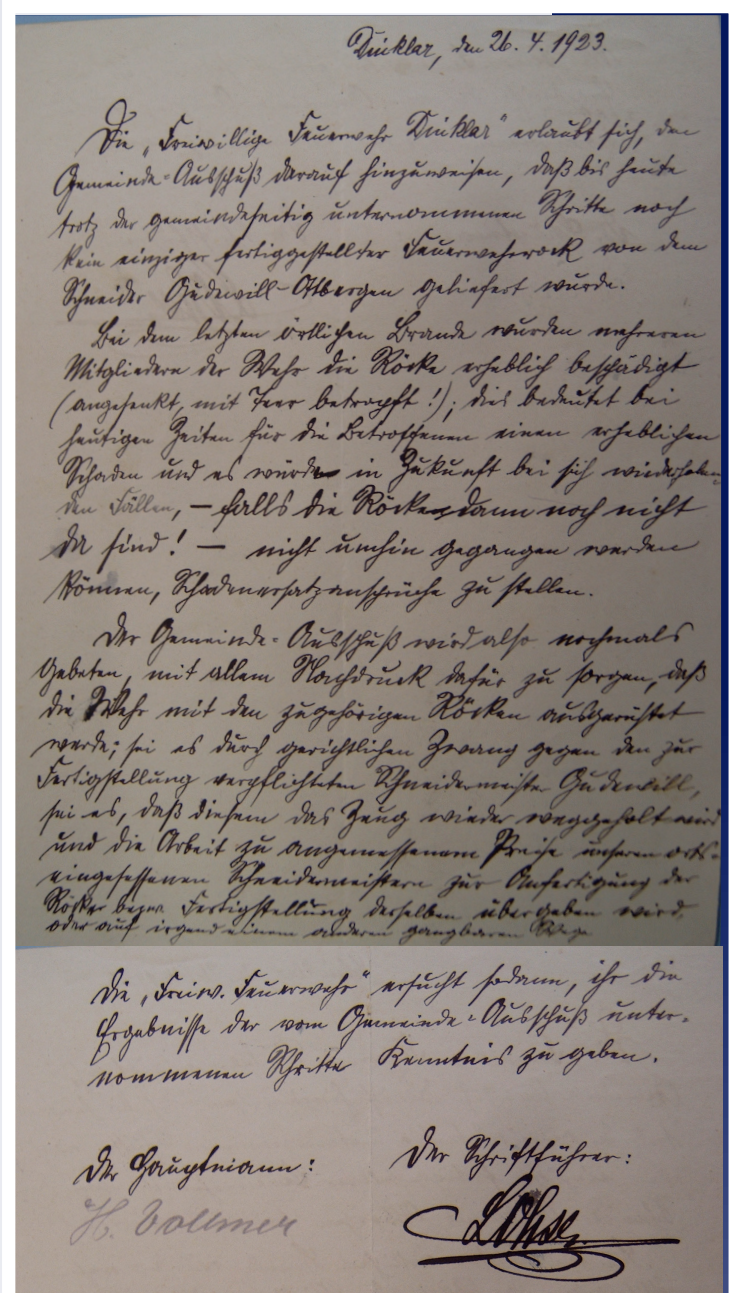 Dinklar, den 26. 4. 1923.
Die „Freiwillige Feuerwehr Dinklar" erlaubt sich, den
Gemeinde-Ausschuß darauf hinzuweisen, daß bis heute
trotz der gemeindeseitig unternommenen Schritte noch
kein einziger fertiggestellter Feuerwehrrock von dem
Schneider Gudewill-Ottbergen geliefert wurde.
Bei dem letzten örtlichen Brande wurden mehreren
Mitgliedern der Wehr die Röcke erheblich beschädigt
(angesenkt, mit Teer betropft!); dies bedeutet bei
heutigen Zeiten für die Betroffenen einen erheblichen
Schaden und es würde in Zukunft bei sich wiederholen-
den Fällen, – falls die Röcke dann noch nicht
da sind! – nicht umhin gegangen werden
können, Schadenersatzansprüche zu stellen.
Der Gemeinde-Ausschuß wird also nochmals
gebeten, mit allem Nachdruck dafür zu sorgen, daß
die Wehr mit den zugehörigen Röcken ausgerüstet
werde; sei es durch gerichtlichen Zwang gegen den zur
Fertigstellung verpflichteten Schneidermeister Gudewill,
sei es, daß diesem das Zeug wieder weggeholt wird
und die Arbeit zu angemessenem Preise unseren orts-
eingesessenen Schneidermeistern zur Anfertigung der
Röcke bezw. Fertigstellung derselben übergeben wird
oder auf irgend einem anderen gangbaren Wege.
Die „Freiw. Feuerwehr" ersucht sodann, ihr die
Ergebnisse der vom Gemeinde-Ausschuß unter-
nommenen Schritte Kenntnis zu geben.
Der Hauptmann: Der Schriftführer:
H. Vollmer Lohse